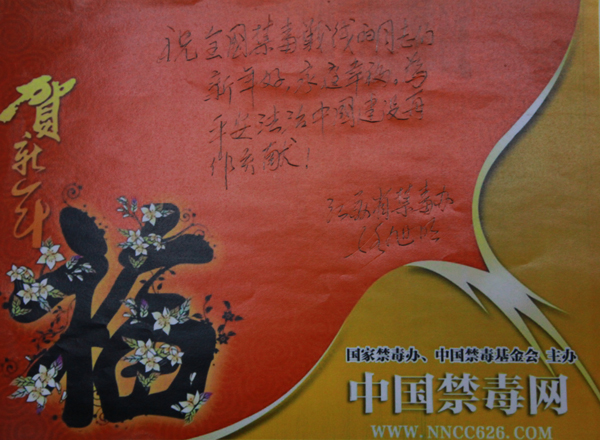 祝全国禁毒战线的同志们
新年好,家庭幸福,为
平安法治中国建设再
作贡献!
江苏省禁毒办
贺新年
福
国家禁毒办、中国禁毒基金会 主办
中国禁毒网
WWW.NNCC626.COM